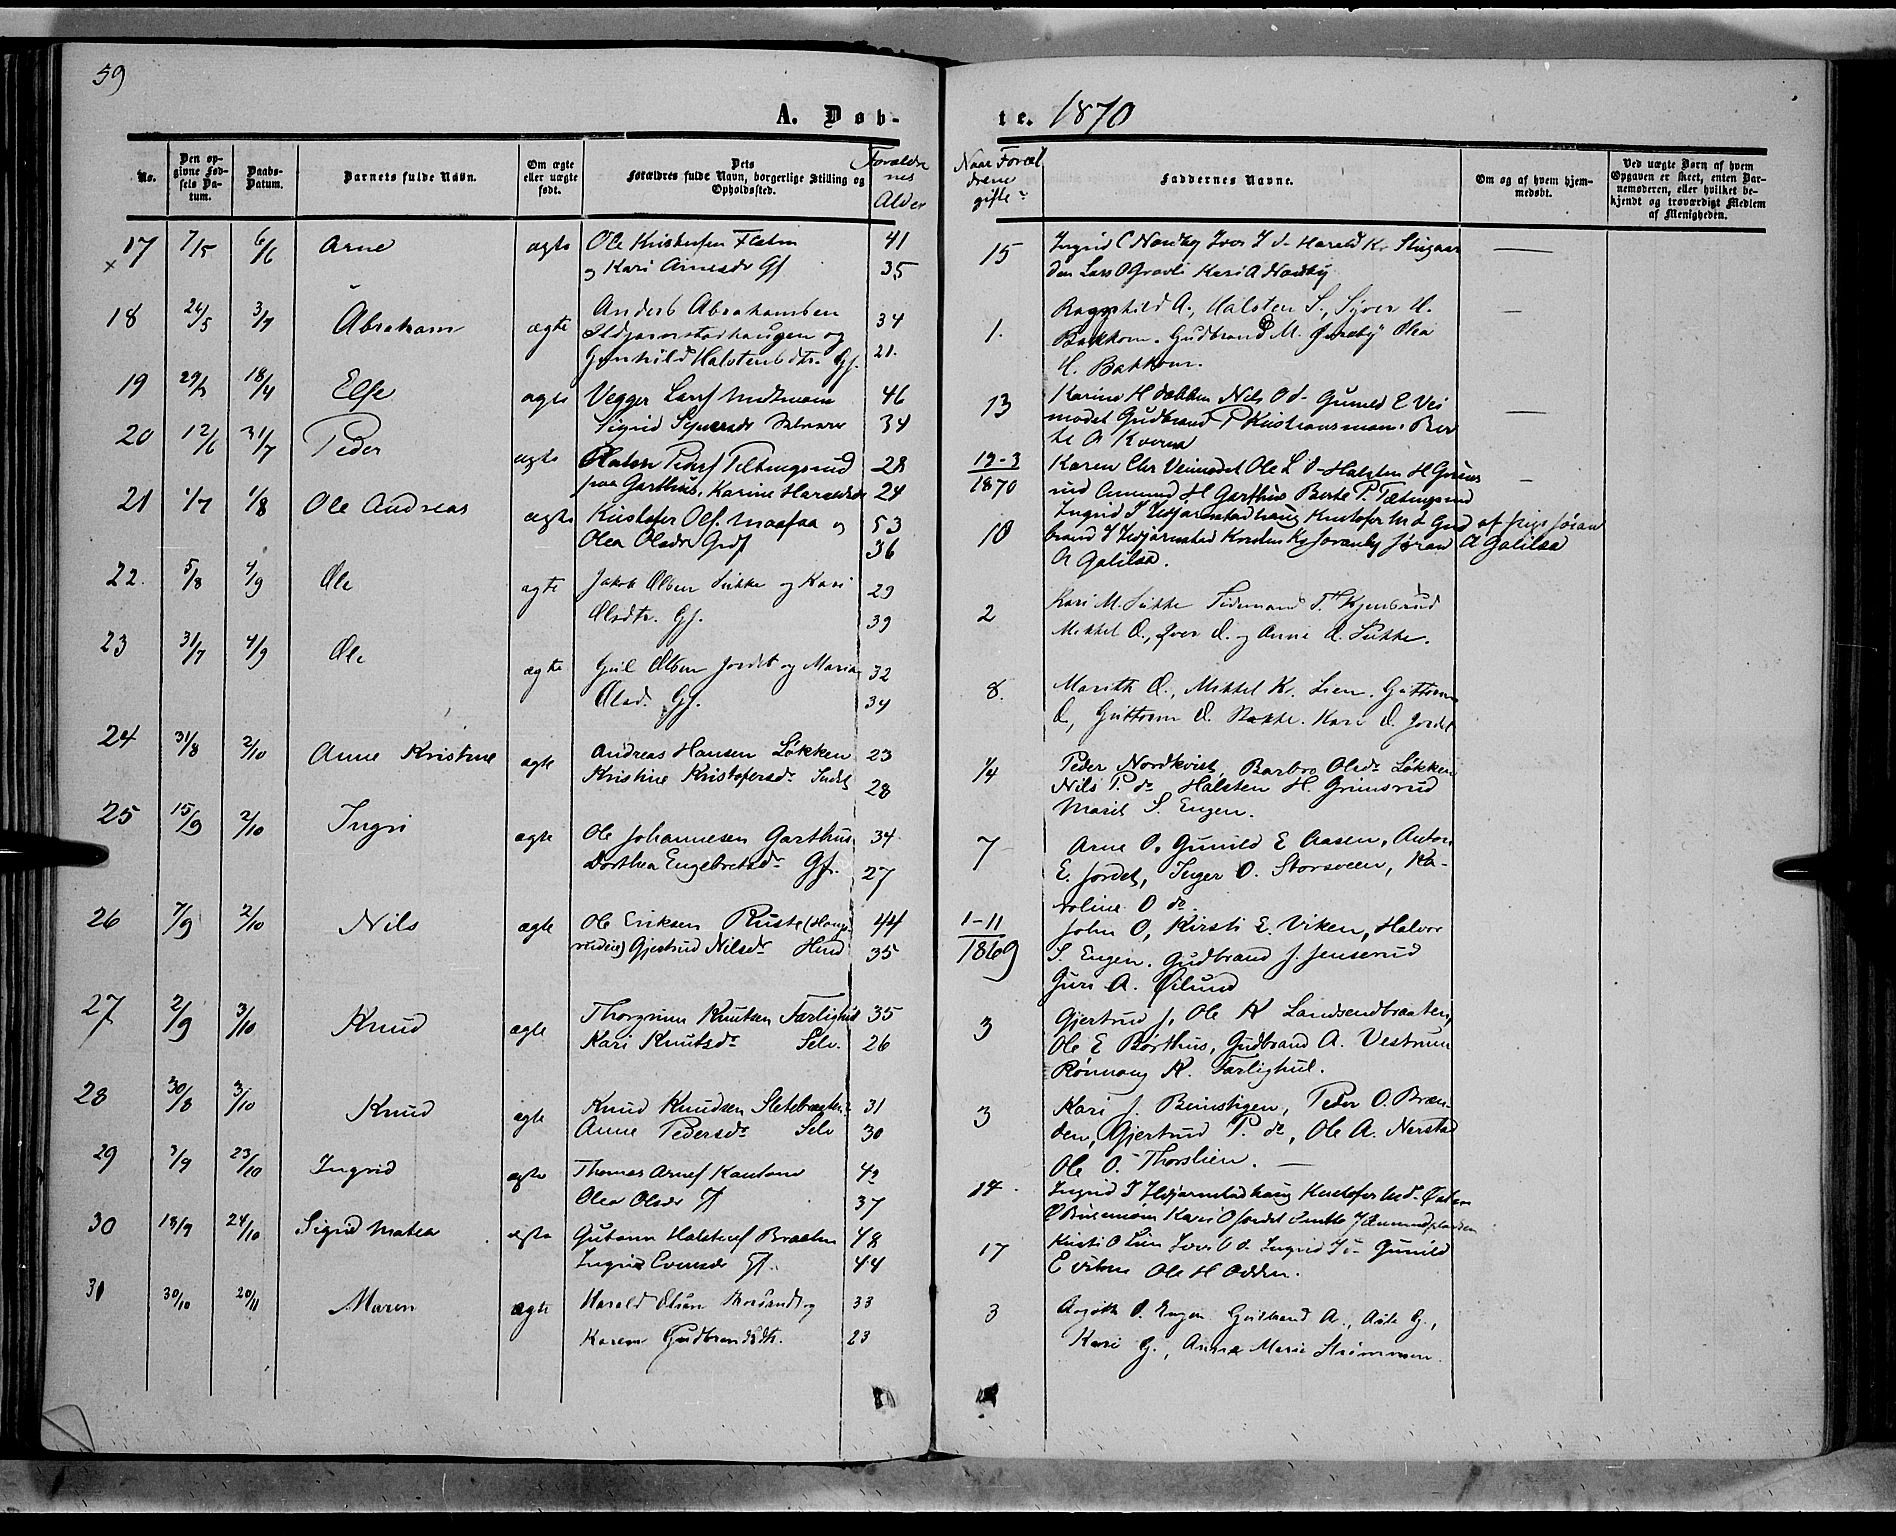 59
A. Døb-
te. 1870
No.
Den op-
givne Fød-
sels Da-
tum.
Daabs-
Datum.
Barnets fulde Navn.
Om ægte
eller uægte
født.
Dets
Forældres fulde Navn, borgerlige Stilling og
Opholdssted.
Forældre
nes
Alder
Naar Foræl
drene
gifte
Faddernes Navne.
Om og af hvem hjem-
medøbt.
Ved uægte Børn af hvem
Opgaven er skeet, enten Bar-
nemoderen, eller hvilket be-
kjendt og troværdigt Medlem
af Menigheden.
17 7/5 6/6 Arne ægte Ole Kristofsen 41
og Kari Arnesdr Gf 35
15 Ingrid O Nordby Iver I do Harald Kr
den Lars O Kari A Nordby
18 24/5 3/7 Abraham ægte Anders Abrahamsen 34
og
Gunhild Halstensdtr. Gf. 21.
1. Ragnhild A., Halsten S., Syver H.
Bakkom. Gudbrand M. Ourdby Olea
H. Bakkom.
19 29/3 18/4 Else ægte Vegger Larsf 46
Sigrid 34
13 Karine H Løkken Nils O do Gunild E Vei
modet Gudbrand P Kristiansmoen Ber
te A Kverna
20 12/6 31/7 Peder ægte Pedersf Tætingsrud 28
paa Garthus, Karine Haraldsdr 24
19-3
1870 Karen Chr Veimodet Ole L do Halsten H Grims
rud Amund H Garthus Berte P. Tætingsrud
21 1/7 1/8 Ole Andreas ægte Kristofer Olsf. og 53
Olea Olsdr 36
10 Ingrid I Kristofer M d Gud
brand I Jøran A Galilæa
A Galilæa.
22. 5/8 4/9 Ole ægte Jakob Olsen Lükke og Kari 29
Olsdtr. Gf. 39
2 Kari M. Lükke Tidemand T.
Mikkel O., Iver O. og Anne O. Lükke.
23 31/7 4/9 Ole ægte Olsen Jordet og Maria 32
Olsd. Gf. 34
8. Marith O., Mikkel K. Lien. Guttorm
O, Guttorm O. Bakke. Kari O. Jordet
24 31/8 2/10 Anne Kristine ægte Andreas Hansen Løkken 23
Kristine Kristofersdr. 28
1/4 Peder Nordkvist, Barbro Olsdr Løkken
Nils P. do Halsten H. Grimsrud
Marit S. Engen.
25 15/9 2/10 Ingri ægte Ole Johannesen Garthus 34
Dorthea Engebretsdr Gf. 27
7 Arne O, Gunild E Aasen, Anton
E. Jordet, Inger O. Storsveen, Ka-
roline O do.
26 7/9 2/10 Nils ægte Ole Eriksen Ruste 44
Gjertrud Nilsdr 35
1-11
1869 John O, Kirsti E. Viken, Halvor
S. Engen. Gudbrand J. Jenserud
Guri A. Øilund
27 2/9 3/10 Knud ægte Thorgrim Knutsen Færlighul 35
Kari Knutsdr Selv. 26
3 Gjertrud J, Ole K Landsendbraaten,
Ole E Børthus, Gudbrand A. Vestrum
Rønnoug K. Færlighul.
28 30/8 3/10 Knud ægte Knud Knudsen Sletebraaten 31
Anne Pedersdr Selv 30
3 Kari J. Beinstigen, Peder O. Bræn-
den, Gjertrud P. do, Ole A. Nerstad
Ole O. Thorslien.
29 3/9 23/10 Ingrid ægte Thomas Arnesf 42
Olea Olsdr Gf 37
14. Ingrid I Kristofer M d.
Kari O Jordet
30 13/9 24/10 Sigrid Matea ægte Guttorm Halstensf Braaten 48
Ingrid Evensdr Gf. 44
17 Kirsti O Lien Iver O d. Ingrid Gunild
E Viken Ole H Odden.
31 30/10 20/11 Maren ægte Harald Olsen og 33
Karen Gudbrandsdtr. 23
3 O. Engen. Gulbrand A., G.,
Kari G., Anne Marie Strømmen.